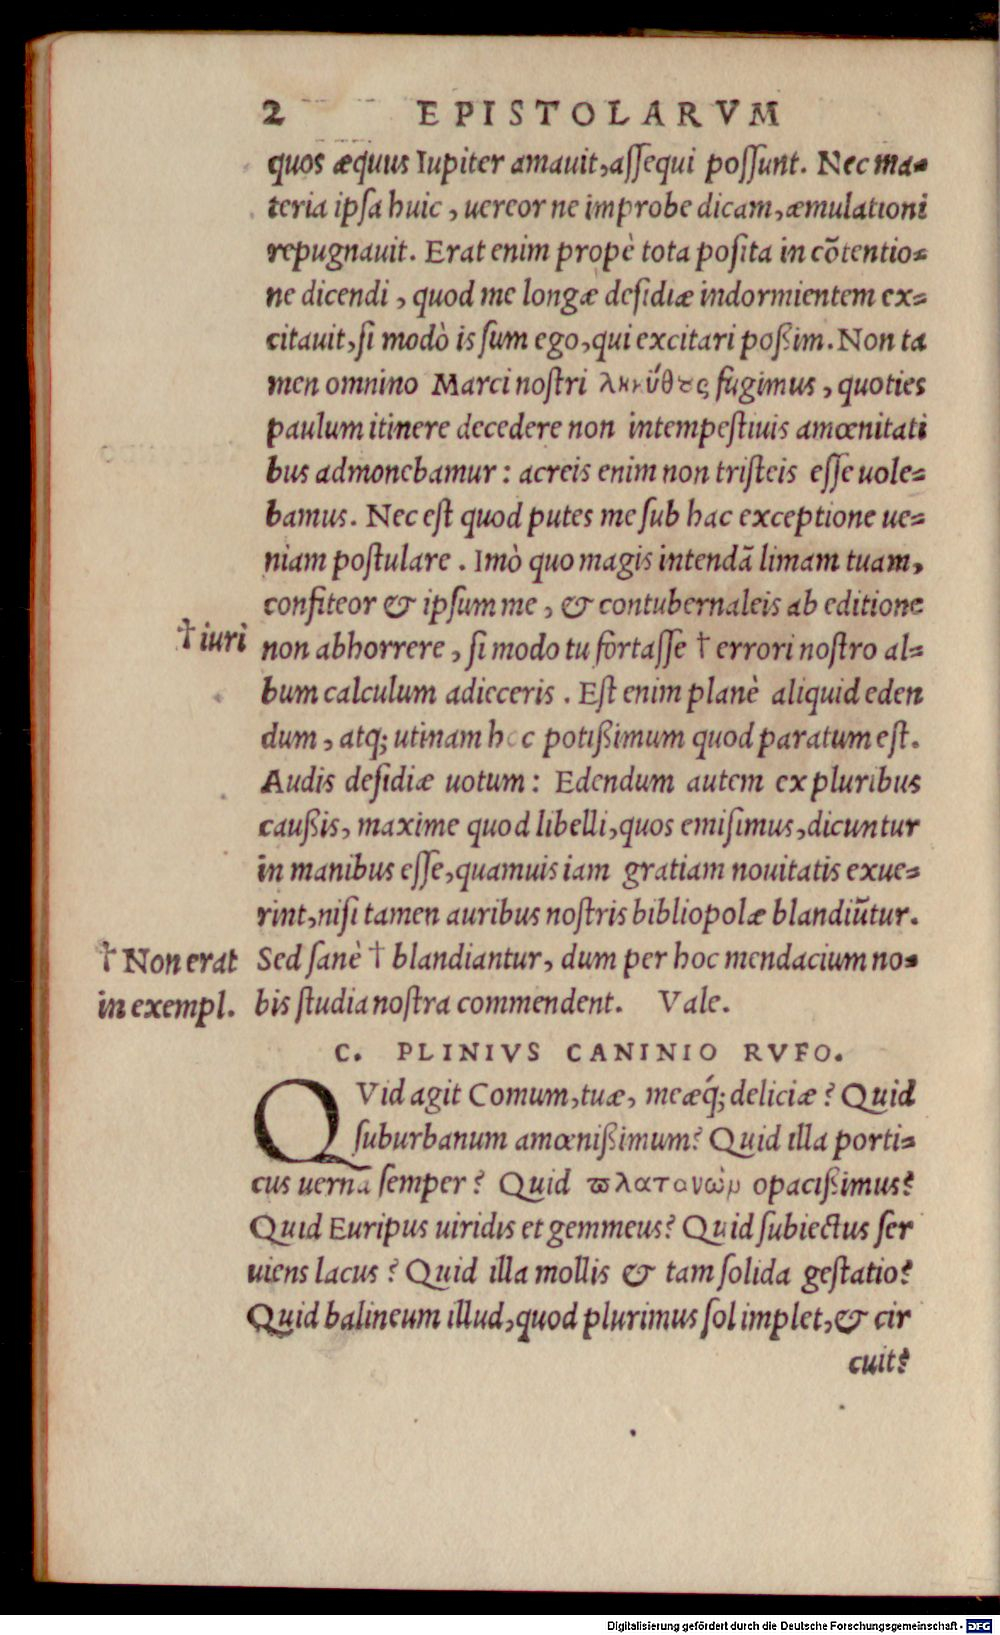 2 EPISTOLARVM
quos æquus Iupiter amauit, aſſequi poſſunt. Nec ma-
teria ipſa huic, uereor ne improbe dicam, æmulationi
repugnauit. Erat enim propè tota poſita in cõtentio-
ne dicendi, quod me longæ deſidiæ indormientem ex-
citauit, ſi modò is ſum ego, qui excitari poßim. Non ta
men omnino Marci noſtri ληκύθȣς fugimus, quoties
paulum itinere decedere non intempeſtiuis amœnitati
bus admonebamur: acreis enim non triſteis eſſe uole-
bamus. Nec eſt quod putes me ſub hac exceptione ue-
niam poſtulare. Imò quo magis intendã limam tuam,
confiteor & ipſum me, & contubernaleis ab editione
† iuri
non abhorrere, ſi modo tu fortaſſe † errori noſtro al-
bum calculum adieceris. Eſt enim planè aliquid eden
dum, atq; utinam hoc potißimum quod paratum eſt.
Audis deſidiæ uotum: Edendum autem ex pluribus
caußis, maxime quod libelli, quos emiſimus, dicuntur
in manibus eſſe, quamuis iam gratiam nouitatis exue-
rint, niſi tamen auribus noſtris bibliopolæ blandiũtur.
† Non erat
in exempl.
Sed ſanè † blandiantur, dum per hoc mendacium no-
bis ſtudia noſtra commendent. Vale.
C. PLINIVS CANINIO RVFO.
QVid agit Comum, tuæ, meæq́; deliciæ? Quid
ſuburbanum amœnißimum? Quid illa porti-
cus uerna ſemper? Quid ϖλατανὼν opacißimus?
Quid Euripus uiridis et gemmeus? Quid ſubiectus ſer
uiens lacus? Quid illa mollis & tam ſolida geſtatio?
Quid balineum illud, quod plurimus ſol implet, & cir
cuit?
Digitalisierung gefördert durch die Deutsche Forschungsgemeinschaft - DFG